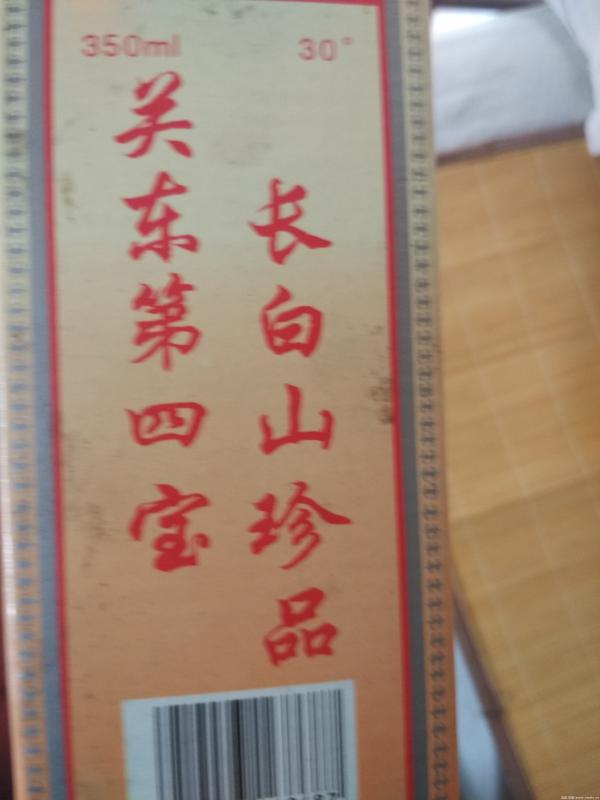 350ml 30°
长白山珍品
关东第四宝